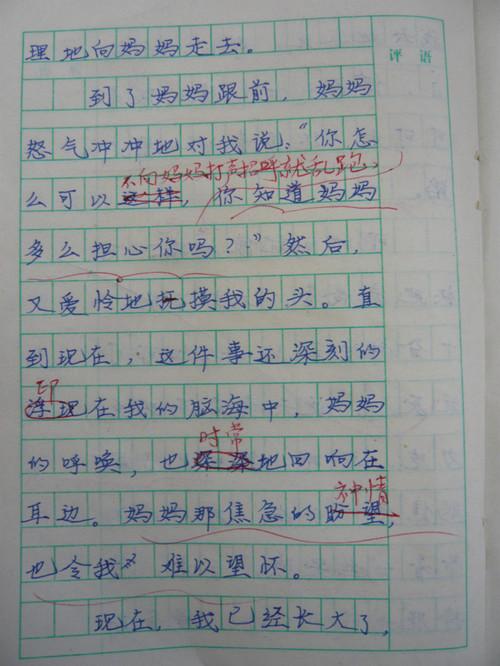 理地向妈妈走去。
评语
到了妈妈跟前，妈妈
怒气冲冲地对我说："你怎
不向妈妈打声招呼就乱跑
么可以这样，你知道妈妈
多么担心你吗？"然后，
又爱怜地抚摸我的头。直
到现在，这件事还深刻的
印
浮现在我的脑海中，妈妈
时常
的呼唤，也深深地回响在
神情
耳边。妈妈那焦急的盼望，
也令我难以望怀。
现在，我已经长大了，